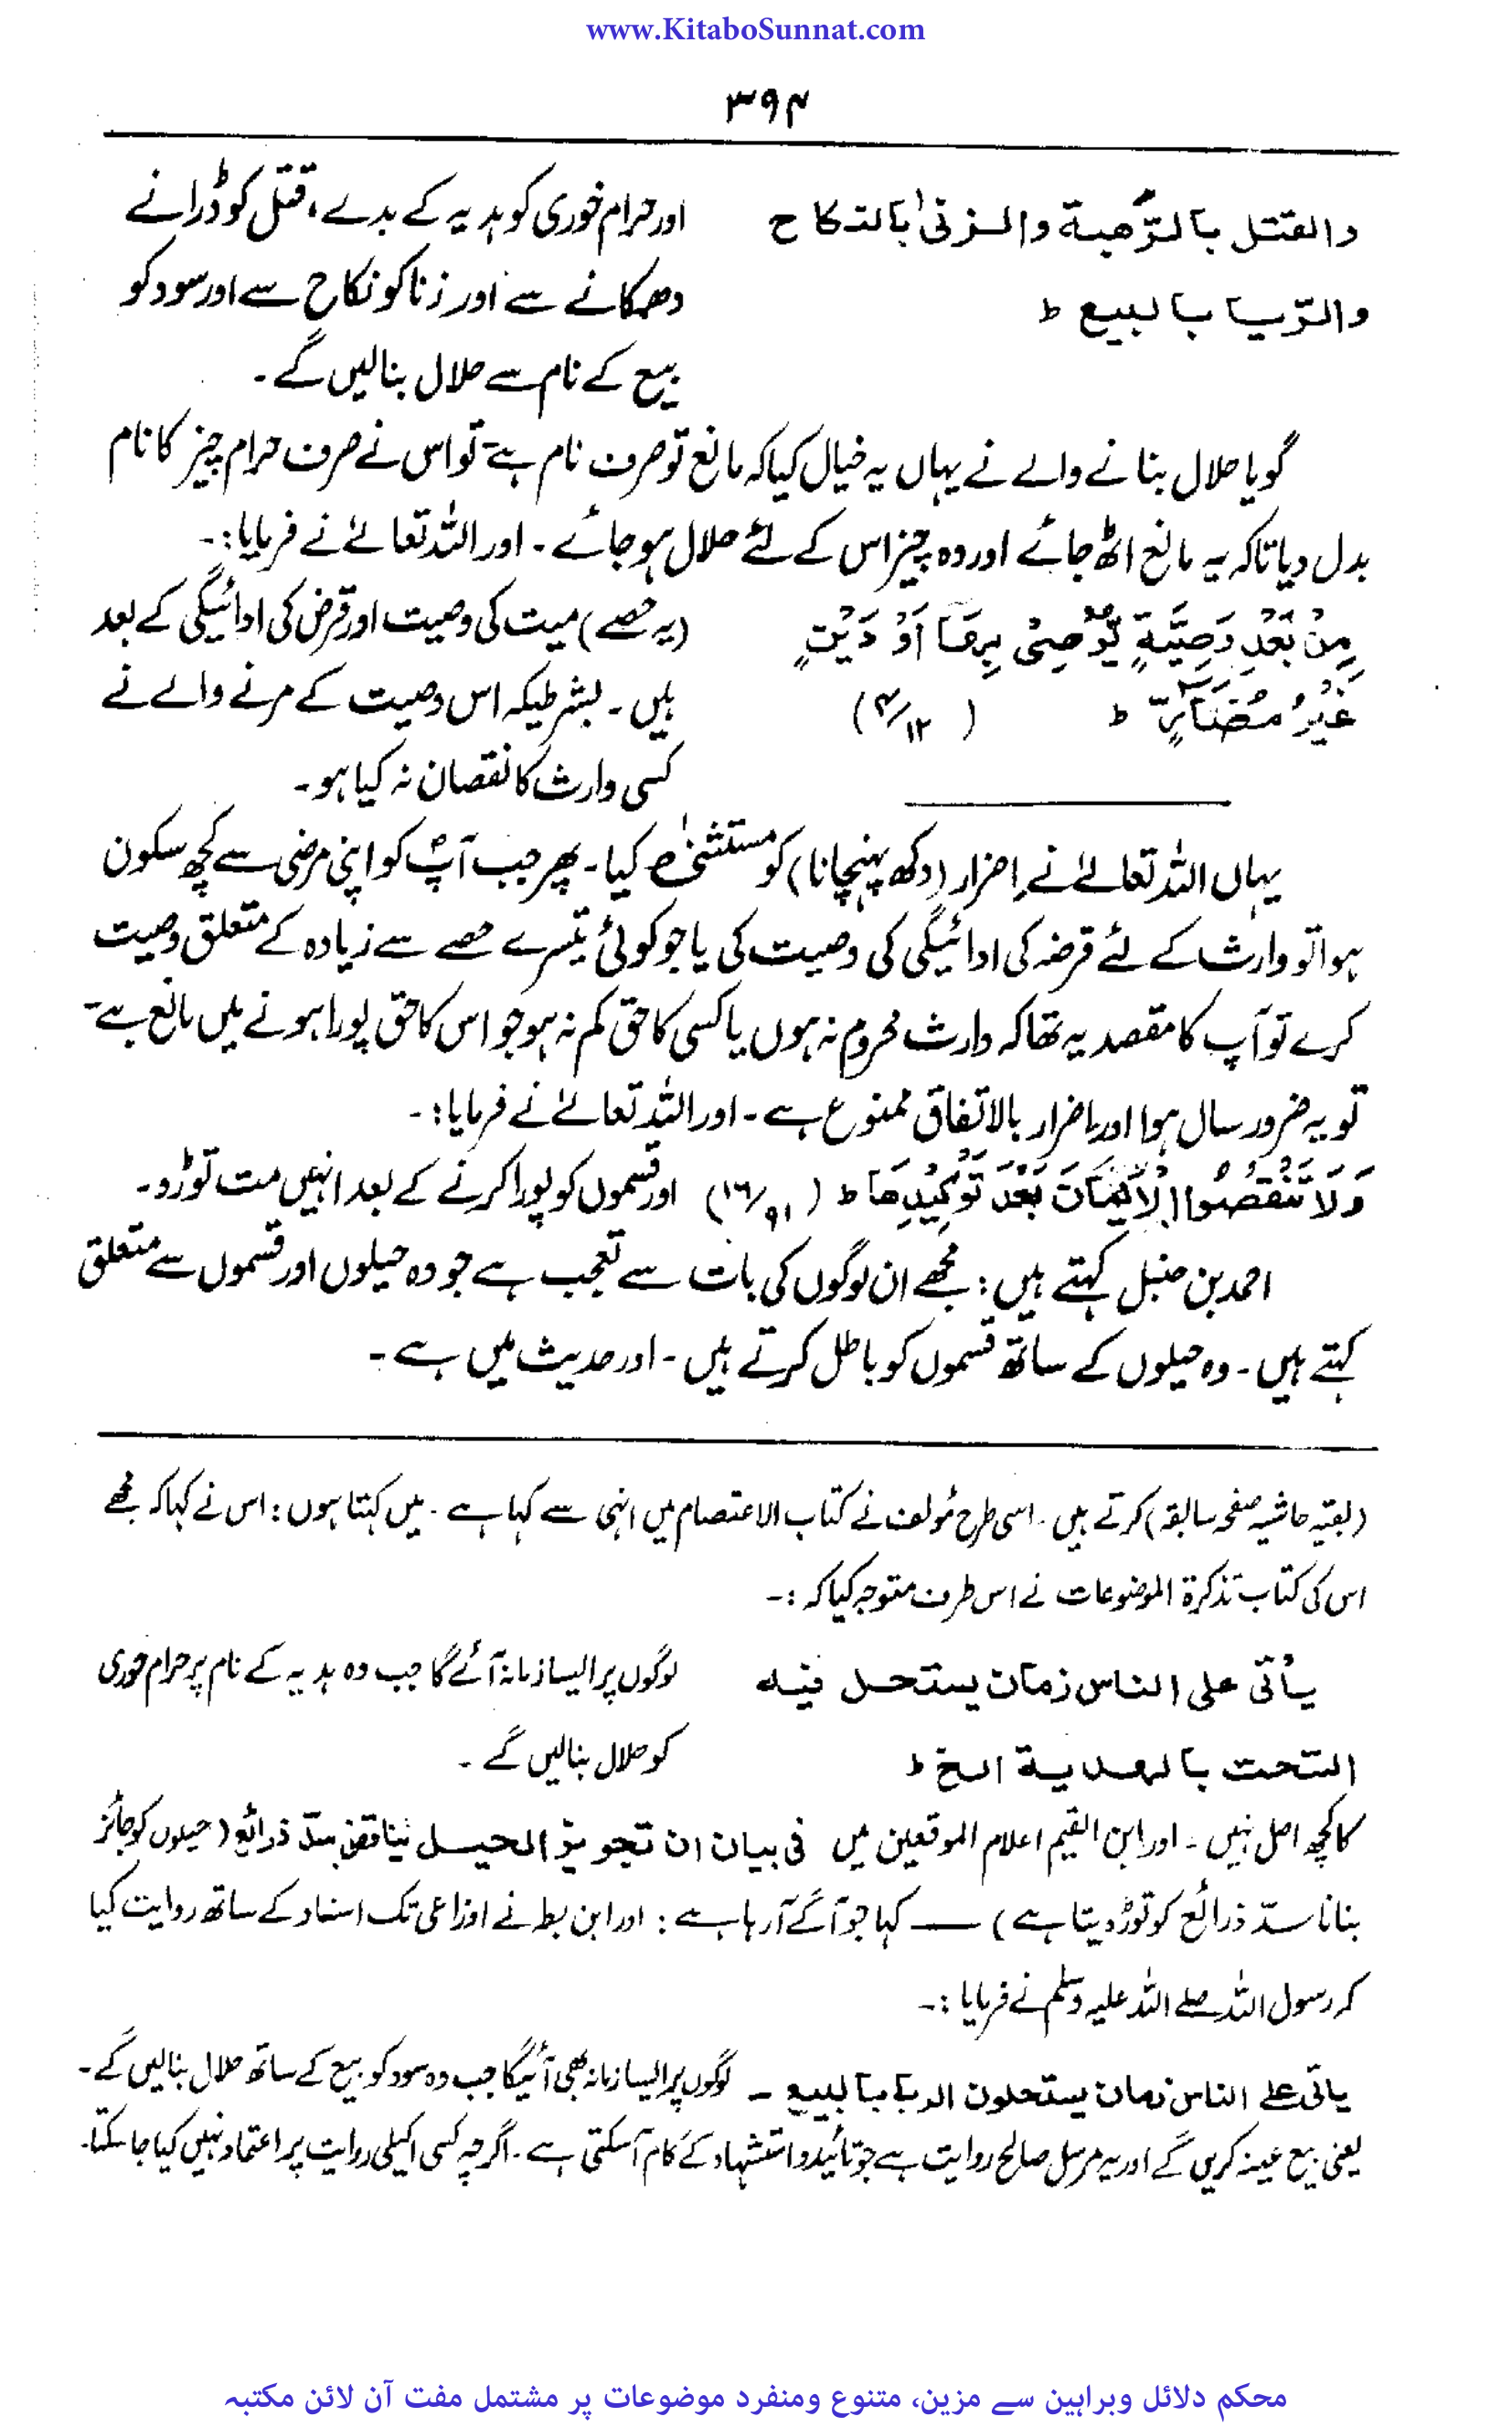 www.KitaboSunnat.com
۳۹۴
والقتل بالرّھبة والزنیٰ بالنکاح اور حرام خوری کو ہدیہ کے بدے، قتل کو ڈرانے
والرّبا بالبیع ط دھمکانے سے اور زنا کو نکاح سے اور سود کو
بیع کے نام سے حلال بنالیں گے۔
گویا حلال بنانے والے نے یہاں یہ خیال کیا کہ مانع تو صرف نام ہے تو اس نے صرف حرام چیز کا نام
بدل دیا تاکہ یہ مانع اٹھ جائے اور وہ چیز اس کے لئے حلال ہو جائے۔ اور اللہ تعالےٰ نے فرمایا:۔
مِنْ بَعْدِ وَصِیَّةٍ یُّوْصٰی بِھَآ اَوْ دَیْنٍ (یہ حصے) میت کی وصیت اور قرض کی ادائیگی کے بعد
غَیْرَ مُضَآرٍّ ط (۴/۱۲) ہیں۔ بشرطیکہ اس وصیت کے مرنے والے نے
کسی وارث کا نقصان نہ کیا ہو۔
یہاں اللہ تعالےٰ نے اِضرار (دکھ پہنچانا) کو مستثنےٰ کیا۔ پھر جب آپؐ کو اپنی مرضی سے کچھ سکون
ہوا تو وارث کے لئے قرضہ کی ادائیگی کی وصیت کی یا جو کوئی تیسرے حصے سے زیادہ کے متعلق وصیت
کرے تو آپ کا مقصد یہ تھا کہ وارث محروم نہ ہوں یا کسی کا حق کم نہ ہو جو اس کا حق پورا ہونے میں مانع ہے۔
تو یہ ضرور سال ہوا اور اضرار بالاتفاق ممنوع ہے۔ اور اللہ تعالےٰ نے فرمایا:۔
وَلَا تَنْقُضُوا الْاَیْمَانَ بَعْدَ تَوْکِیْدِھَا ط (۱۶/۹۱) اور قسموں کو پورا کرنے کے بعد انہیں مت توڑو۔
احمد بن حنبل کہتے ہیں: مجھے ان لوگوں کی بات سے تعجب ہے جو وہ حیلوں اور قسموں سے متعلق
کہتے ہیں۔ وہ حیلوں کے ساتھ قسموں کو باطل کرتے ہیں۔ اور حدیث میں ہے۔
(بقیہ حاشیہ صفحہ سابقہ) کرتے ہیں۔ اسی طرح مُولف نے کتاب الاعتصام میں انہی سے کہا ہے۔ میں کہتا ہوں: اس نے کہا کہ مجھے
اس کی کتاب تذکرة الموضوعات نے اس طرف متوجہ کیا کہ:۔
یأتی علی الناس زمان یستحل فیه لوگوں پر ایسا زمانہ آئے گا جب وہ ہدیہ کے نام پر حرام خوری
التحت بالھدیة الخ ط کو حلال بنالیں گے۔
کا کچھ اصل نہیں۔ اور ابن القیم اعلام الموقعین میں فی بیان ان تجویز الحیل یناقض سدّ ذرائع (حیلوں کو جائز
بنانا سدّ ذرائع کو توڑ دیتا ہے) — کہا جو آگے آ رہا ہے: اور ابن بطہ نے اوزاعی تک اسناد کے ساتھ روایت کیا
کہ رسول اللہ صلے اللہ علیہ وسلم نے فرمایا:۔
یاتی علے الناس زمان یستحلون الربا بالبیع ۔ لوگوں پر ایسا زمانہ بھی آئیگا جب وہ سود کو بیع کے ساتھ حلال بنالیں گے۔
یعنی بیع عینہ کریں گے اور یہ مرسل صالح روایت ہے جو تائید و استشہاد کے کام آسکتی ہے۔ اگرچہ کسی اکیلی روایت پر اعتماد نہیں کیا جا سکتا۔
محکم دلائل وبراہین سے مزین، متنوع ومنفرد موضوعات پر مشتمل مفت آن لائن مکتبہ